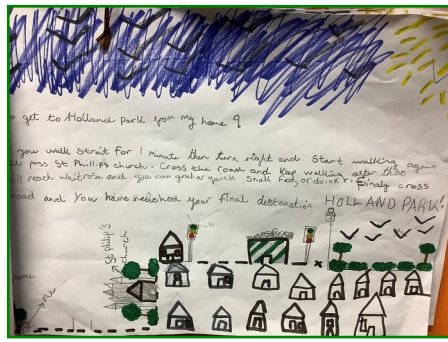 o get to Holland park from my home ?
you walk strait for 1 minute then turn right and Start walking again
pass St Phillip's church. Cross the road and keep walking after that
ll reach Waitrose and you can grab a quick Snall food, or drink. Finaly cross
road and You have reached your final destenation HOLLAND PARK!
St Philip's
church
home
me